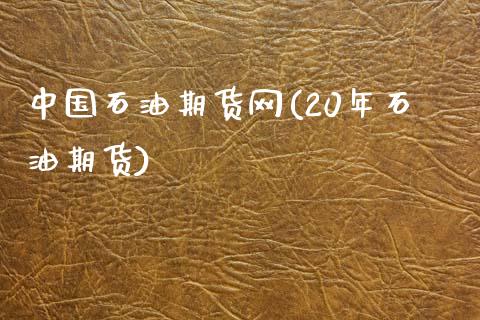 中国石油期货网(20年石
油期货)